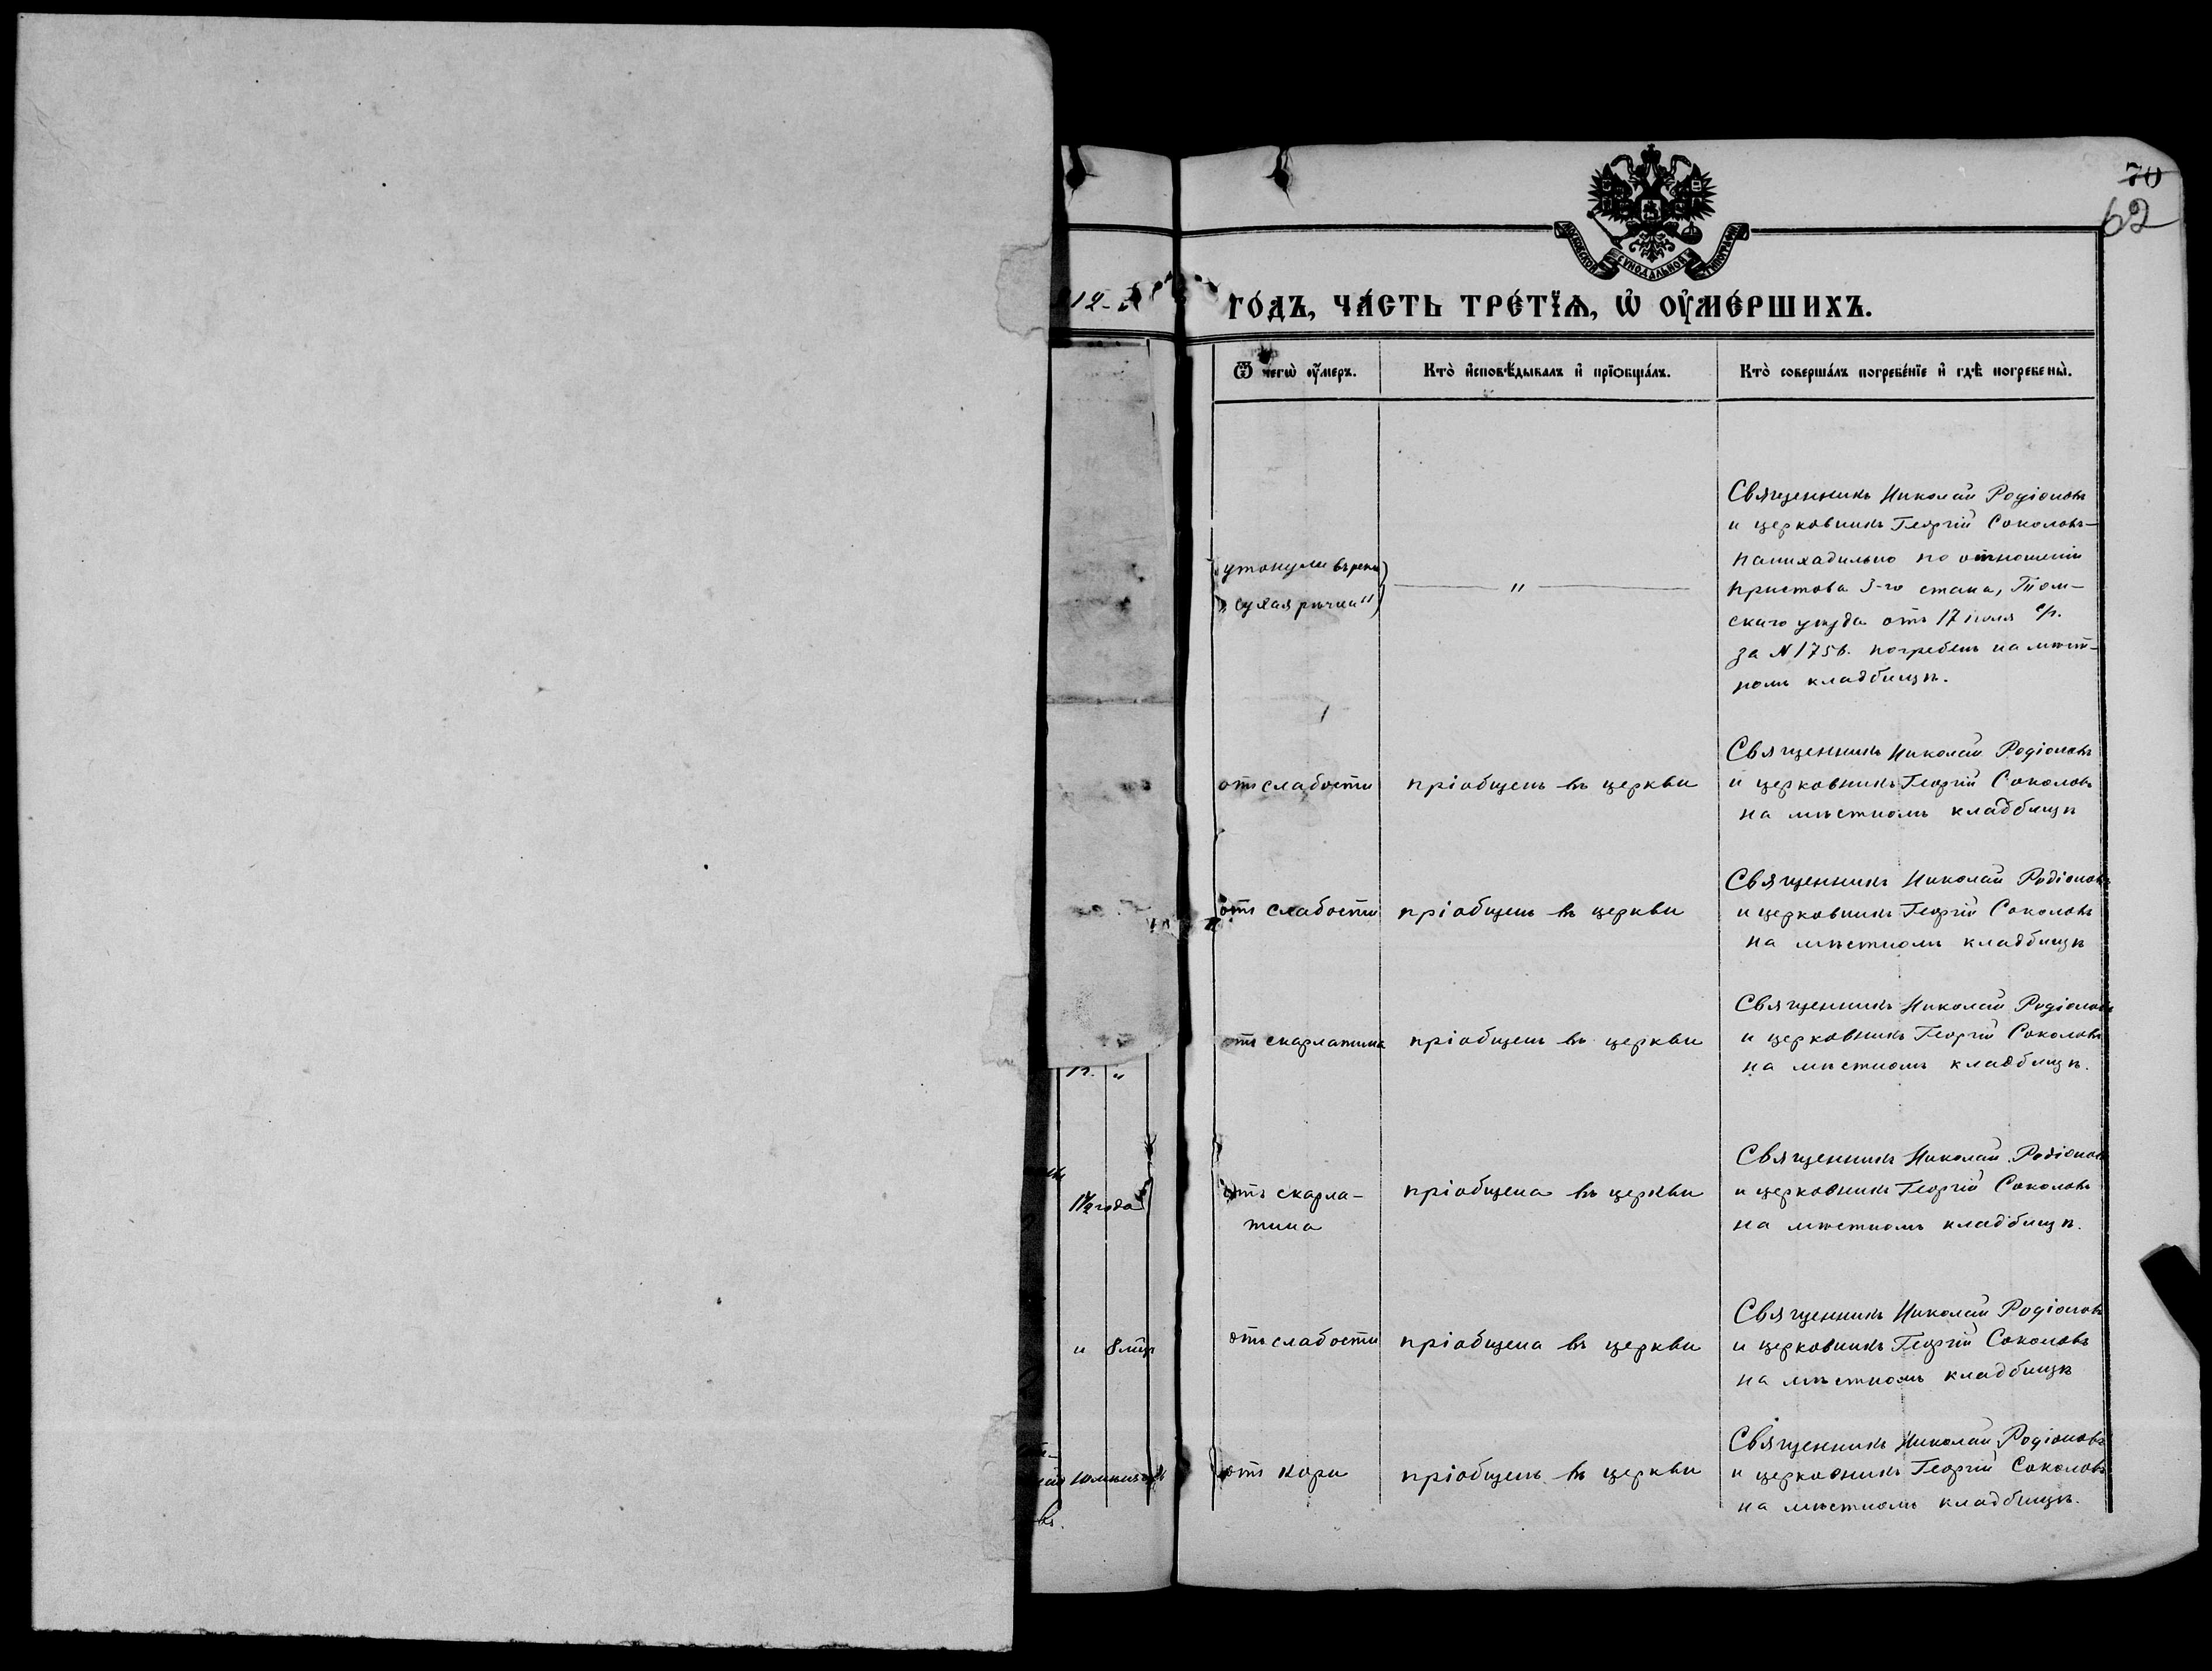 70
62
МОСКОВСКОЙ СѴНОДАЛЬНОЙ ТИПОГРАФІИ
12-
го́дъ, ча́сть тре́тїѧ, ѽ ᲂу҆ме́ршихъ.
Ѿ чегѡ̀ ᲂу҆́меръ.
Кто̀ и҆сповѣ́дывалъ и҆ прїѡбща́лъ.
Кто̀ соверша́лъ погребе́нїе и҆ гдѣ̀ погребены̀.
утонули въ рекѣ
„Сухая рѣчка"
"
Священникъ Николай Родіоновъ
и церковникъ Георгій Соколовъ-
панихадильно по отношенію
пристова 3-го стана, Том-
скаго уѣзда отъ 17 іюля с/г.
за N 1756. погребенъ на мѣст-
номъ кладбищѣ.
отъ слабости
пріобщенъ въ церкви
Священникъ Николай Родіоновъ
и церковникъ Георгій Соколовъ
на мѣстномъ кладбищѣ
отъ слабости
пріобщенъ въ церкви
Священникъ Николай Родіоновъ
и церковникъ Георгій Соколовъ
на мѣстномъ кладбищѣ
отъ скарлатина
пріобщенъ въ церкви
Священникъ Николай Родіоновъ
и церковникъ Георгій Соколовъ
на мѣстномъ кладбищѣ.
1½ года
отъ скарла-
тина
пріобщена въ церкви
Священникъ Николай Родіоновъ
и церковникъ Георгій Соколовъ
на мѣстномъ кладбищѣ.
" 8 мѣс
отъ слабости
пріобщена въ церкви
Священникъ Николай Родіоновъ
и церковникъ Георгій Соколовъ
на мѣстномъ кладбищѣ
отъ кори
пріобщенъ въ церкви
Священникъ Николай Родіоновъ
и церковникъ Георгій Соколовъ
на мѣстномъ кладбищѣ.